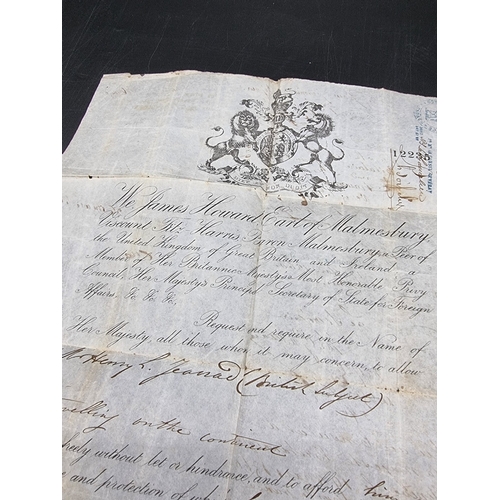 We James Howard Earl of Malmesbury
Viscount Fitz Harris Baron Malmesbury a Peer of
the United Kingdom of Great Britain and Ireland a
Member of Her Britannic Majesty's Most Honorable Privy
Council, Her Majesty's Principal Secretary of State for Foreign
Affairs &c. &c. &c.
Request and require in the Name of
Her Majesty, all those whom it may concern, to allow
Mr Henry L. (British Subject)
velling on the continent
freely without let or hindrance, and to afford him
e and protection of wh